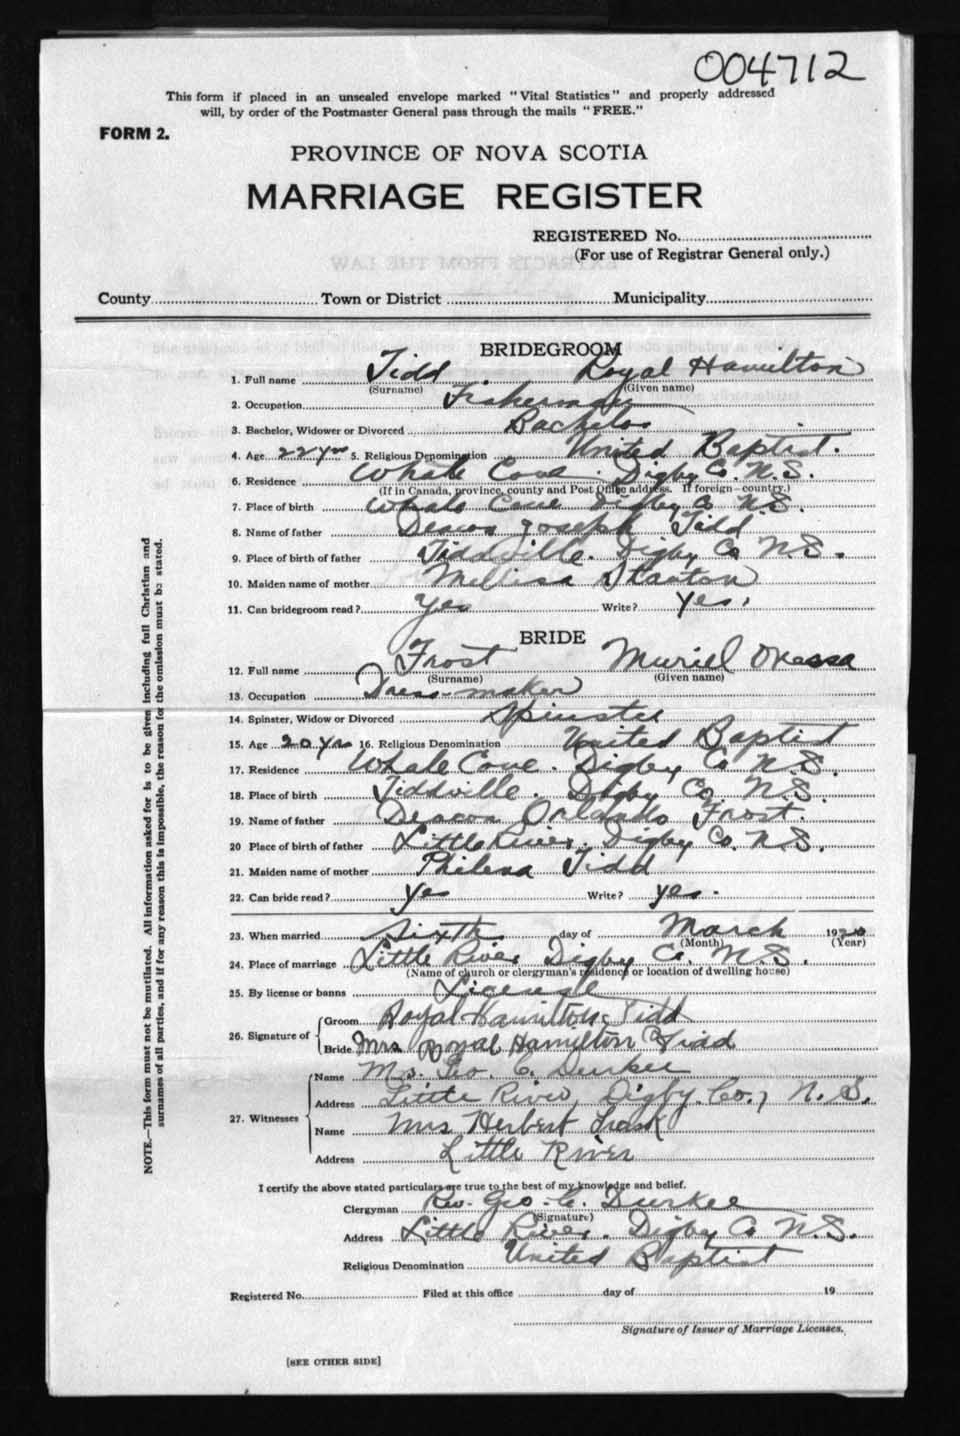 004712
This form if placed in an unsealed envelope marked "Vital Statistics" and properly addressed
will, by order of the Postmaster General pass through the mails "FREE."
FORM 2.
PROVINCE OF NOVA SCOTIA
MARRIAGE REGISTER
REGISTERED No.
(For use of Registrar General only.)
County Town or District Municipality
BRIDEGROOM
1. Full name Tidd Royal Hamilton
(Surname) (Given name)
2. Occupation Fisherman
3. Bachelor, Widower or Divorced Bachelor
4. Age 22 yrs 5. Religious Denomination United Baptist.
6. Residence Whale Cove. Digby Co. N.S.
(If in Canada, province, county and Post Office address. If foreign—country.)
7. Place of birth Whale Cove Digby Co N.S.
8. Name of father Deacon Joseph Tidd
9. Place of birth of father Tiddville. Digby Co N.S.
10. Maiden name of mother Mellisa Stanton
11. Can bridegroom read? Yes Write? Yes.
BRIDE
12. Full name Frost Muriel
(Surname) (Given name)
13. Occupation Dress-maker
14. Spinster, Widow or Divorced Spinster
15. Age 20 yrs 16. Religious Denomination United Baptist
17. Residence Whale Cove. Digby Co N.S.
18. Place of birth Tiddville. Digby Co, N.S.
19. Name of father Deacon Orlando Frost.
20 Place of birth of father Little River. Digby Co. N.S.
21. Maiden name of mother Philena Tidd
22. Can bride read? Yes Write? yes.
23. When married Sixth day of March 1920
(Month) (Year)
24. Place of marriage Little River Digby Co. N.S.
(Name of church or clergyman's residence or location of dwelling house)
25. By license or banns License
26. Signature of Groom Royal Hamilton Tidd
Bride Mrs Royal Hamilton Tidd
27. Witnesses Name Mrs. Geo. C. Durkee
Address Little River, Digby Co., N.S.
Name Mrs Herbert Trask
Address Little River
I certify the above stated particulars are true to the best of my knowledge and belief.
Clergyman Rev. Geo. C. Durkee
(Signature)
Address Little River. Digby Co N.S.
Religious Denomination United Baptist
Registered No. Filed at this office day of 19
Signature of Issuer of Marriage Licenses.
[SEE OTHER SIDE]
NOTE.—This form must not be mutilated. All information asked for is to be given including full Christian and
surnames of all parties, and if for any reason this is impossible, the reason for the omission must be stated.